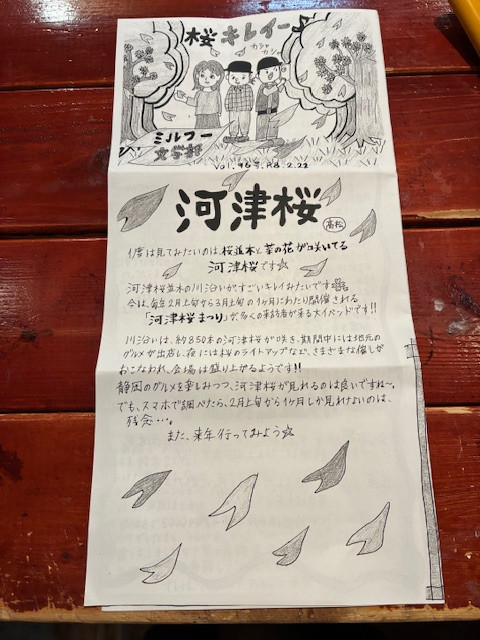 桜キレイー
カシャ
カシャ
ミルフー
文学部
Vol.96号.R8.2.22
河津桜
高松
1度は見てみたいのは、桜並木と菜の花が咲いてる
河津桜です☆
河津桜並木の川沿いがすごいキレイみたいです
今は、毎年2月上旬から3月上旬の1ヶ月にわたり開催される
「河津桜まつり」が、多くの来訪者が来る大イベントです!!
川沿いは、約850本の河津桜が咲き、期間中には地元の
グルメが出店し、夜には桜のライトアップなど、さまざまな催しが
おこなわれ、会場は盛り上がるようです!!
静岡のグルメを楽しみつつ、河津桜が見れるのは良いですね〜。
でも、スマホで調べたら、2月上旬から1ヶ月しか見れないのは、
残念…。
また、来年行ってみよう☆